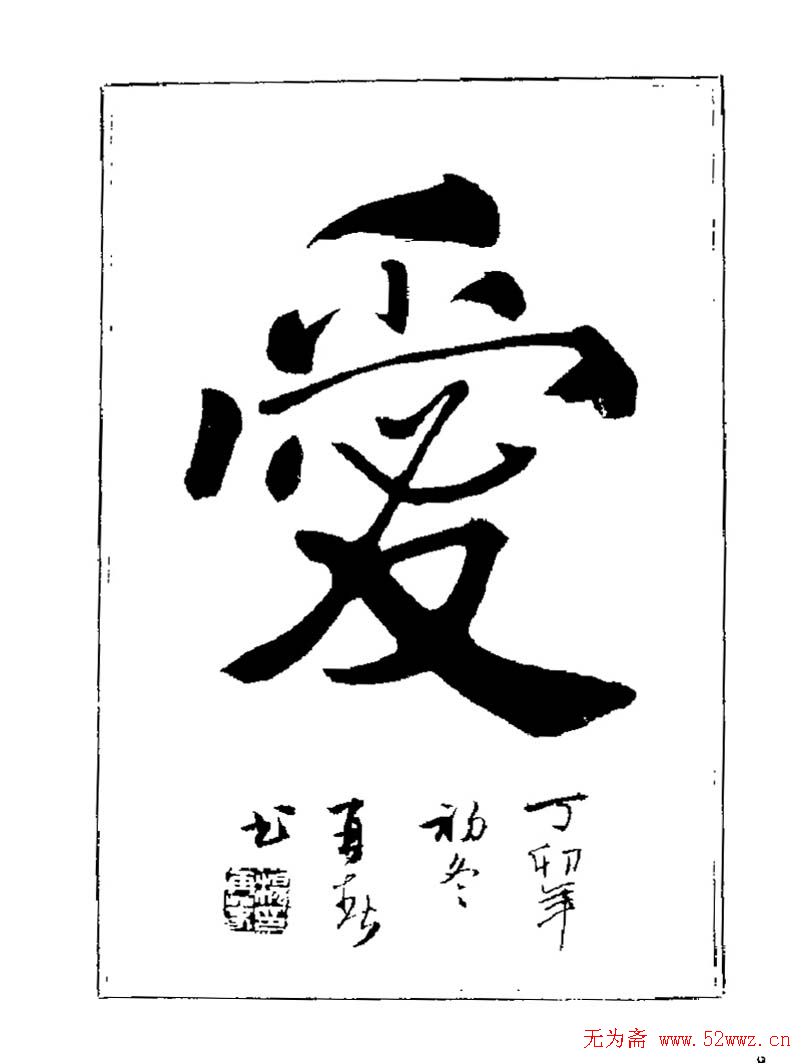 愛
丁卯年
初冬
再春
书
无为斋 www.52wwz.cn
9